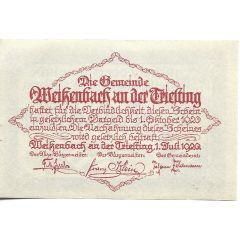 Die Gemeinde
Weißenbach an der Triesting
haftet für die Verbindlichkeit diesen Schein
in gesetzlichem Bargeld bis 1. Oktober 1920
einzulösen. Die Nachahmung dieses Scheines
wird gesetzlich bestraft.
Weißenbach an der Triesting, 1. Juli 1920
Der Bürgermeister: Der Gemeinderat: